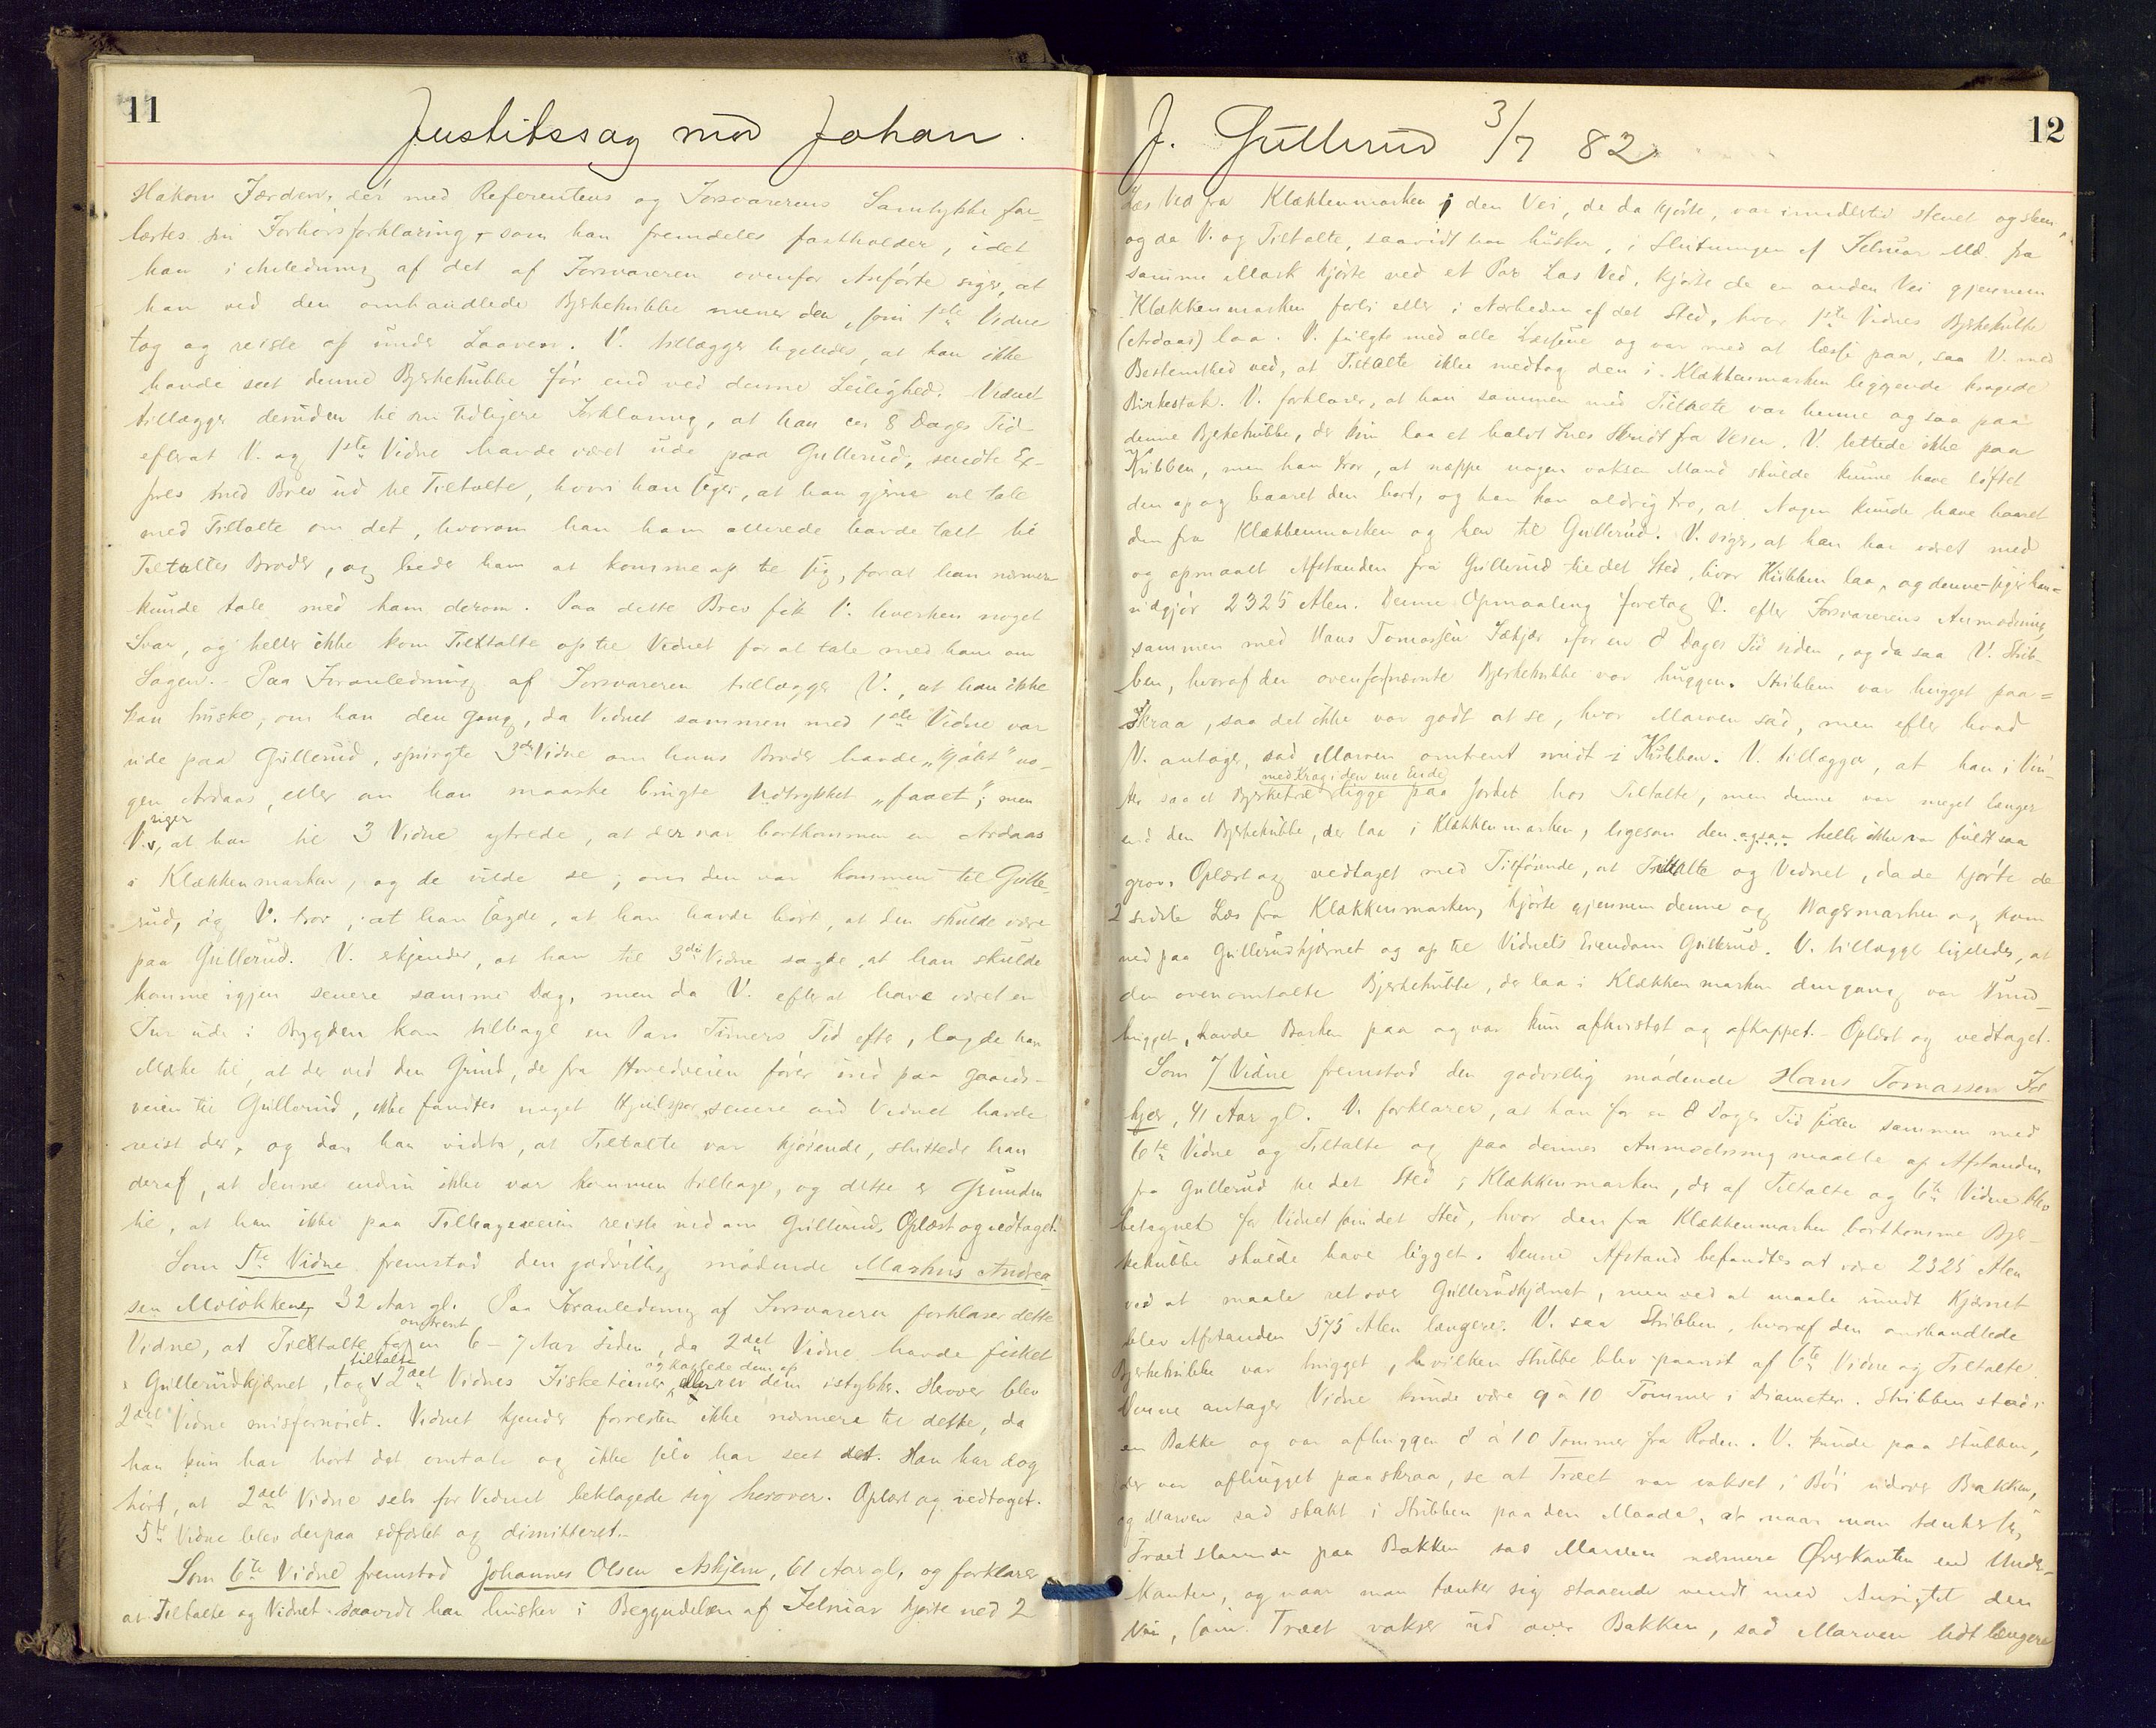 11
Justitssag mod Johan
Hakon Færden, der med Referentens og Forsvarerens Samtykke fore-
læstes sin Forhørsforklaring, som han fremdeles fastholder, idet
han i Anledning af det af Forsvareren ovenfor Anførte siger, at
han ved den omhandlede Bjerkekubbe mener den, som 1ste Vidne
tog og reiste op under Laaven. V. tillægger ligeledes, at han ikke
havde seet denne Bjerkekubbe før end ved denne Leilighed. Vidnet
tillægger desuden til sin tidligere Forklaring, at han ca 8 Dages Tid
efterat V. og 1ste Vidne havde været ude paa Gullerud, sendte Ex-
pres med Brev ud til Tiltalte, hvori han siger, at han gjerne vil tale
med Tiltalte om det, hvorom han ham allerede havde talt til
Tiltaltes Broder, og beder ham at komme op til sig, forat han nærmere
kunde tale med ham derom. Paa dette Brev fik V. hverken noget
Svar, og heller ikke kom Tiltalte op til Vidnet for at tale med ham om
Sagen. - Paa Foranledning af Forsvareren tillægger V., at han ikke
kan huske, om han den Gang, da Vidnet sammen med 1ste Vidne var
ude paa Gullerud, spurgte 3die Vidne om hans Broder havde "kjøbt" no-
gen Ardaas, eller om han maaske brugte Udtrykket "faaet"; men
V. siger, at han til 3 Vidne ytrede, at der var bortkommen en Ardaas
i Klækkenmarken, og de vilde se, om den var kommen til Gulle-
rud, og V. tror, at han sagde, at han havde hørt, at den skulde være
paa Gullerud. V. erkjender, at han til 3die Vidne sagde, at han skulde
komme igjen senere samme Dag, men da V. efterat have været en
Tur ude i Bygden kom tilbage en Pars Timers Tid efter, lagde han
Mærke til, at der ved den Grind, der fra Hovedveien fører ind paa Gaards-
veien til Gullerud, ikke fandtes noget Hjulspor senere end Vidnet havde
reist der, og da han vidste, at Tiltalte var kjørende, sluttede han
deraf, at denne endnu ikke var kommen tilbage, og dette er Grunden
til, at han ikke paa Tilbageveien reiste indom Gullerud. Oplæst og vedtaget.
Som 5te Vidne fremstod den godvillig mødende Markus Andrea-
sen Moløkken, 32 Aar gl. Paa Foranledning af Forsvareren forklarer dette
Vidne, at Tiltalte for omtrent en 6-7 Aar siden, da 2det Vidne havde fisket
i Gullerudkjernet, tog tiltalte 2det Vidnes Fisketeiner og kastede dem op eller rev dem istykker. Herover blev
2det Vidne misfornøiet. Vidnet kjender forresten ikke nærmere til dette, da
han kun har hørt det omtale og ikke selv har seet det. Han har dog
hørt, at 2det Vidne selv for Vidnet beklagede sig herover. Oplæst og vedtaget.
5te Vidne blev derpaa edfæstet og dimitteret.
Som 6te Vidne fremstod Johannes Olsen Askjem, 61 Aar gl, og forklarer
at Tiltalte og Vidnet saavidt han husker i Begyndelsen af Februar kjørte ned 2
12
J. Gullerud 3/7 82
Læs Ved fra Klækkenmarken i den Vei, de da kjørte, var imidlertid stenet og slem,
og da V. og Tiltalte, saavidt han husker, i Slutningen af Februar Md. fra
samme Mark kjørte ned et Par Læs Ved, kjørte de en anden Vei gjennem
Klækkenmarken forbi eller i Nærheden af det Sted, hvor 1ste Vidnes Bjerkekubbe
(Ardaas) laa. V. fulgte med alle Læssene og var med at læsse paa, saa V. med
Bestemthed ved, at Tiltalte ikke medtog den i Klækkenmarken liggende kragede
Birkestok. V. forklarer, at han sammen med Tiltalte var henne og saa paa
denne Bjerkekubbe, der kun laa et halvt Snes Skridt fra Veien. V. lettede ikke paa
Kubben, men han tror, at neppe nogen voksen Mand skulde kunne have løftet
den op og baaret den bort, og han kan aldrig tro, at Nogen kunde have baaret
den fra Klækkenmarken og hen til Gullerud. V. siger, at han har været med
og opmaalt Afstanden fra Gullerud til det Sted, hvor Kubben laa, og denne - siger han -
udgjør 2325 Alen. Denne Opmaaling foretog V. efter Forsvarerens Anmodning
sammen med Hans Tomassen for en 8 Dages Tid siden, og da saa V. Stub-
ben, hvoraf den ovenfornævnte Bjerkekubbe var huggen. Stubben var hugget paa=
skraa, saa det ikke var godt at se, hvor Marven sad, men efter hvad
V. antager, sad Marven omtrent midt i Kubben. V. tillægger, at han i Vin-
ter saa et Bjerketræ med Krag i den ene Ende ligge paa Jordet hos Tiltalte, men denne var meget længer
end den Bjerkekubbe, der laa i Klækkenmarken, ligesom den ogsaa heller ikke var fuldt saa
grov. Oplæst og vedtaget med Tilføiende, at Tiltalte og Vidnet, da de kjørte de
2 sidste Læs fra Klækkenmarken, kjørte gjennem denne og Hagemarken og kom
ned paa Gullerudkjernet og op til Vidnets Eiendom Gullerud. V. tillægger ligeledes, at
den ovenomtalte Bjerkekubbe, der laa i Klækkenmarken dengang var
hugget, havde Barken paa og var kun afkvistet og afkappet. - Oplæst og vedtaget.
Som 7 Vidne fremstod den godvillig mødende Hans Tomassen
kjær, 41 Aar gl. V. forklarer, at han for en 8 Dages Tid siden sammen med
6te Vidne og Tiltalte og paa dennes Anmodning maalte op Afstanden
fra Gullerud til det Sted i Klækkenmarken, der af Tiltalte og 6te Vidne blev
betegnet for Vidnet som det Sted, hvor den fra Klækkenmarken bortkomne Bjer-
kekubbe skulde have ligget. Denne Afstand befandtes at være 2325 Alen
ved at maale ret over Gullerudkjernet, men ved at maale rundt Kjernet
blev Afstanden 575 Alen længere. V. saa Stubben, hvoraf den omhandlede
Bjerkekubbe var hugget, hvilken Stubbe blev paavist af 6te Vidne og Tiltalte.
Denne antager Vidne kunde være 9 à 10 Tommer i Diameter. Stubben stod i
en Bakke og var afhuggen 8 à 10 Tommer fra Roden. V. kunde paa Stubben,
der var afhugget paaskraa, se at Træet var vokset i Bøi udover Bakken,
og Marven sad skakt i Stubben paa den Maade, at naar man tænker sig
Træet staaende paa Bakken sad Marven nærmere Øverkanten end Under-
kanten, og naar man tænker sig staaende vendt med Ansigtet den
Vei, som Træet vokser ud over Bakken, sad Marven lidt længere